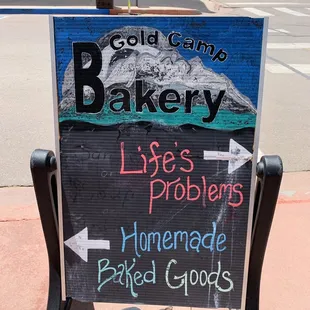 Gold Camp
Bakery
Life's
problems
Homemade
Baked Goods